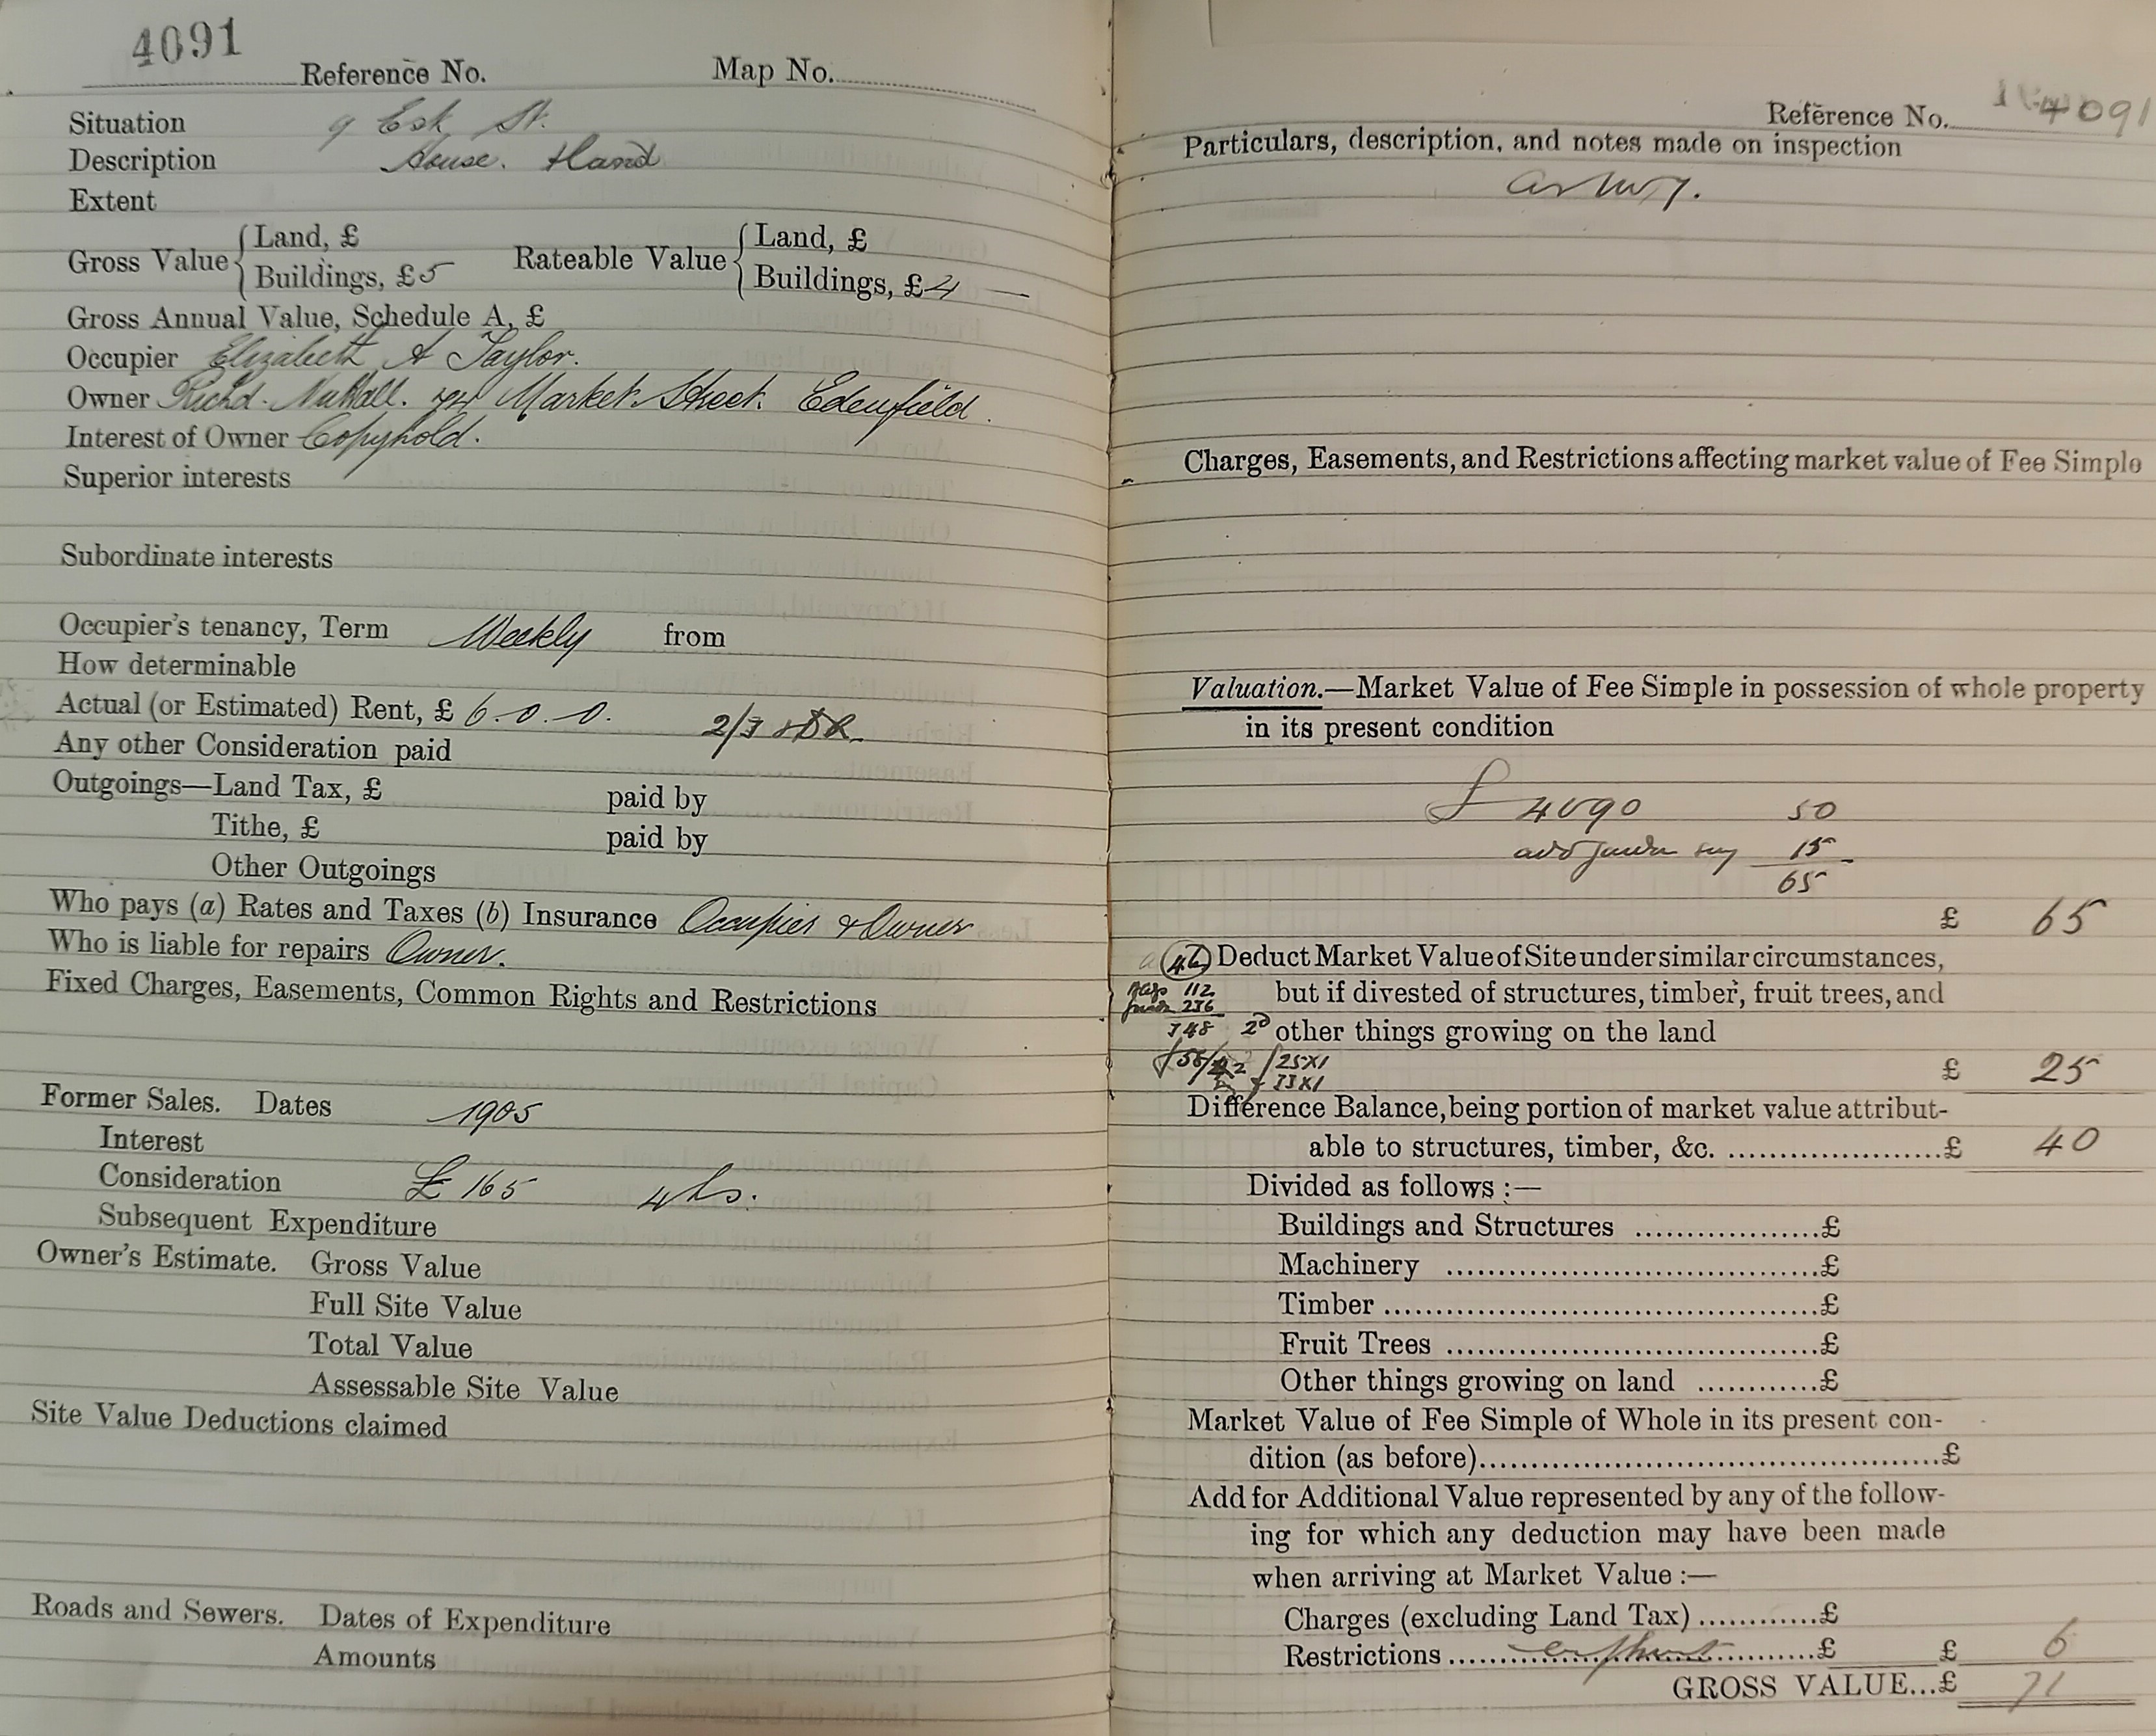 4091
Reference No. Map No.
Situation 9 Esk St.
Description House. Hand
Extent
Gross Value { Land, £ Rateable Value { Land, £
Buildings, £5 Buildings, £4 —
Gross Annual Value, Schedule A, £
Occupier Elizabeth A Taylor.
Owner Richd. Nuttall. Market Street. Edenfield.
Interest of Owner Copyhold.
Superior interests
Subordinate interests
Occupier's tenancy, Term Weekly from
How determinable
Actual (or Estimated) Rent, £ 6.0.0. 2/3
Any other Consideration paid
Outgoings—Land Tax, £ paid by
Tithe, £ paid by
Other Outgoings
Who pays (a) Rates and Taxes (b) Insurance Occupier & Owner
Who is liable for repairs Owner.
Fixed Charges, Easements, Common Rights and Restrictions
Former Sales. Dates 1905
Interest
Consideration £165 4 hs.
Subsequent Expenditure
Owner's Estimate. Gross Value
Full Site Value
Total Value
Assessable Site Value
Site Value Deductions claimed
Roads and Sewers. Dates of Expenditure
Amounts
Reference No. 4091
Particulars, description, and notes made on inspection
Charges, Easements, and Restrictions affecting market value of Fee Simple
Valuation.—Market Value of Fee Simple in possession of whole property
in its present condition
£ 4090 50
add say 15
65
£ 65
Deduct Market Value of Site under similar circumstances,
112 but if divested of structures, timber, fruit trees, and
236
348 2d other things growing on the land
25X1 £ 25
Difference Balance, being portion of market value attribut-
able to structures, timber, &c. £ 40
Divided as follows :—
Buildings and Structures £
Machinery £
Timber £
Fruit Trees £
Other things growing on land £
Market Value of Fee Simple of Whole in its present con-
dition (as before) £
Add for Additional Value represented by any of the follow-
ing for which any deduction may have been made
when arriving at Market Value :—
Charges (excluding Land Tax) £
Restrictions £ £ 6
GROSS VALUE...£ 71